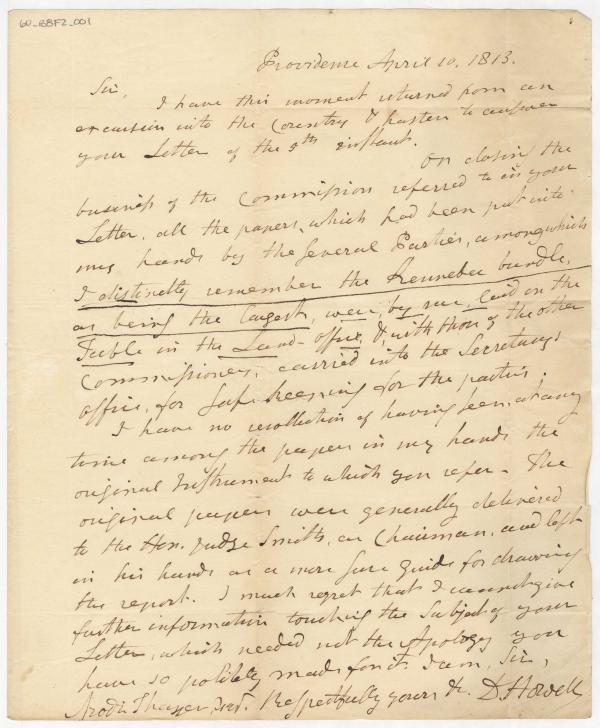 60_BBF2_001
Providence April 10, 1813.
Sir,
I have this moment returned from an
excursion into the Country & hasten to answer
your Letter of the 5th instant.
On closing the
business of the Commission referred to in your
Letter, all the papers, which had been put into
my hands by the several Parties, among which
I distinctly remember the Kennebec bundle,
as being the largest, were, by me, laid on the
Table in the Land-office, & with those of the other
Commissioners, carried into the Secretarys
office, for safe keeping for the parties.
I have no recollection of having seen, at any
time among the papers in my hands the
original Instrument to which you refer. The
original papers were generally delivered
to the Hon. Judge Smith, as Chairman, and left
in his hands as a more sure guide for drawing
the report. I much regret that I cannot give
further information touching the Subject of your
Letter, which needed not the Apology you
have so politely made for it. I am, Sir,
Thayer Respectfully yours &c. D. Howell